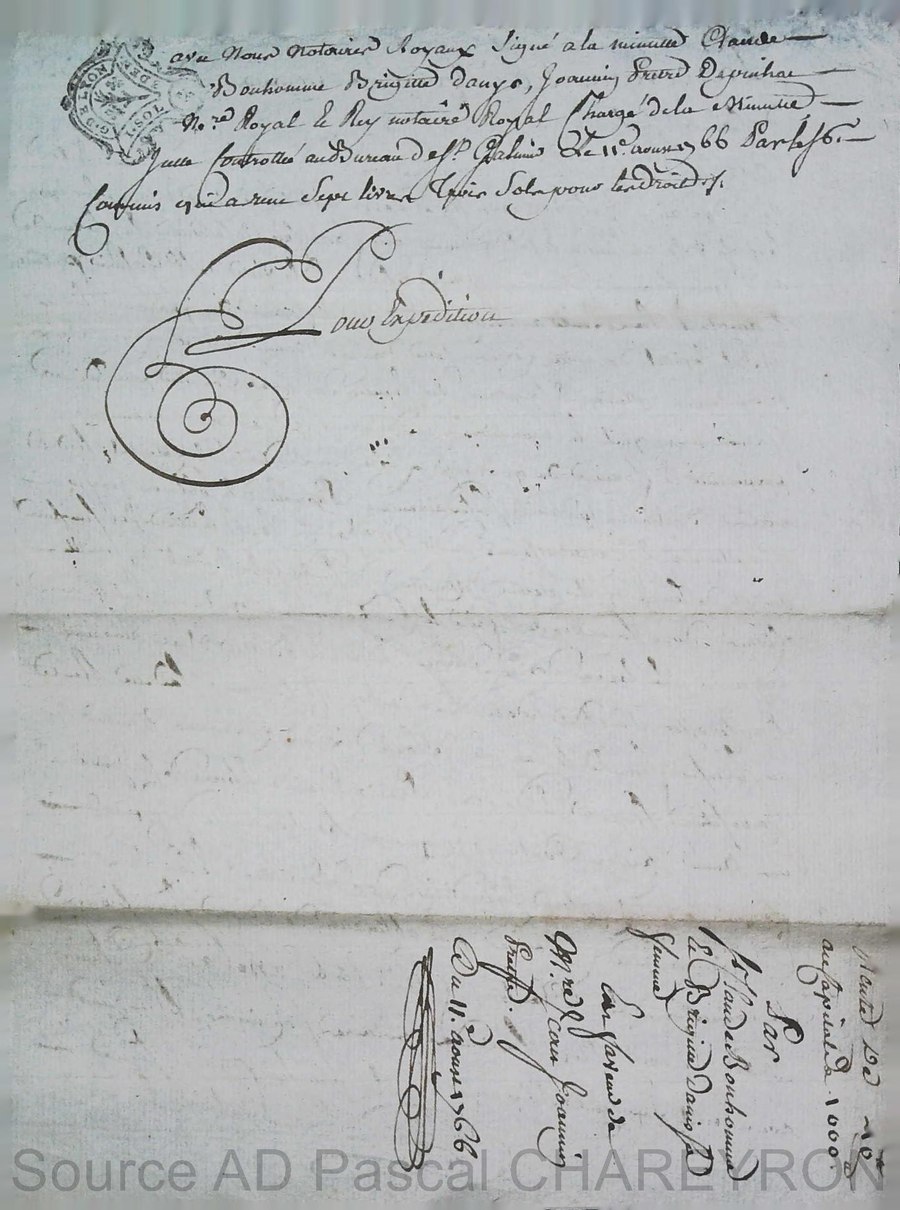 avec Nous Notaires Royaux Signé a la minutte Claude
Bonhomme Brigitte danys, Joannin Pretre Depinhac
No.re Royal Le Rey notaire Royal Chargé de la Minutte
Controllé au Bureau de St. Galmier Le 11e. aoust 1766 Par
Commis qui a reçu Sept livres Trois Sols pour les droits ./.
Pour Expedition
GDE LYON
au Capital de 1000.
Par
Sr. Claude Bonhomme
Et Brigitte Danis sa
femme
En faveur de
M.re Jean Joannin
Pretre.
Du 11.e aoust 1766
Source AD Pascal CHAREYRON